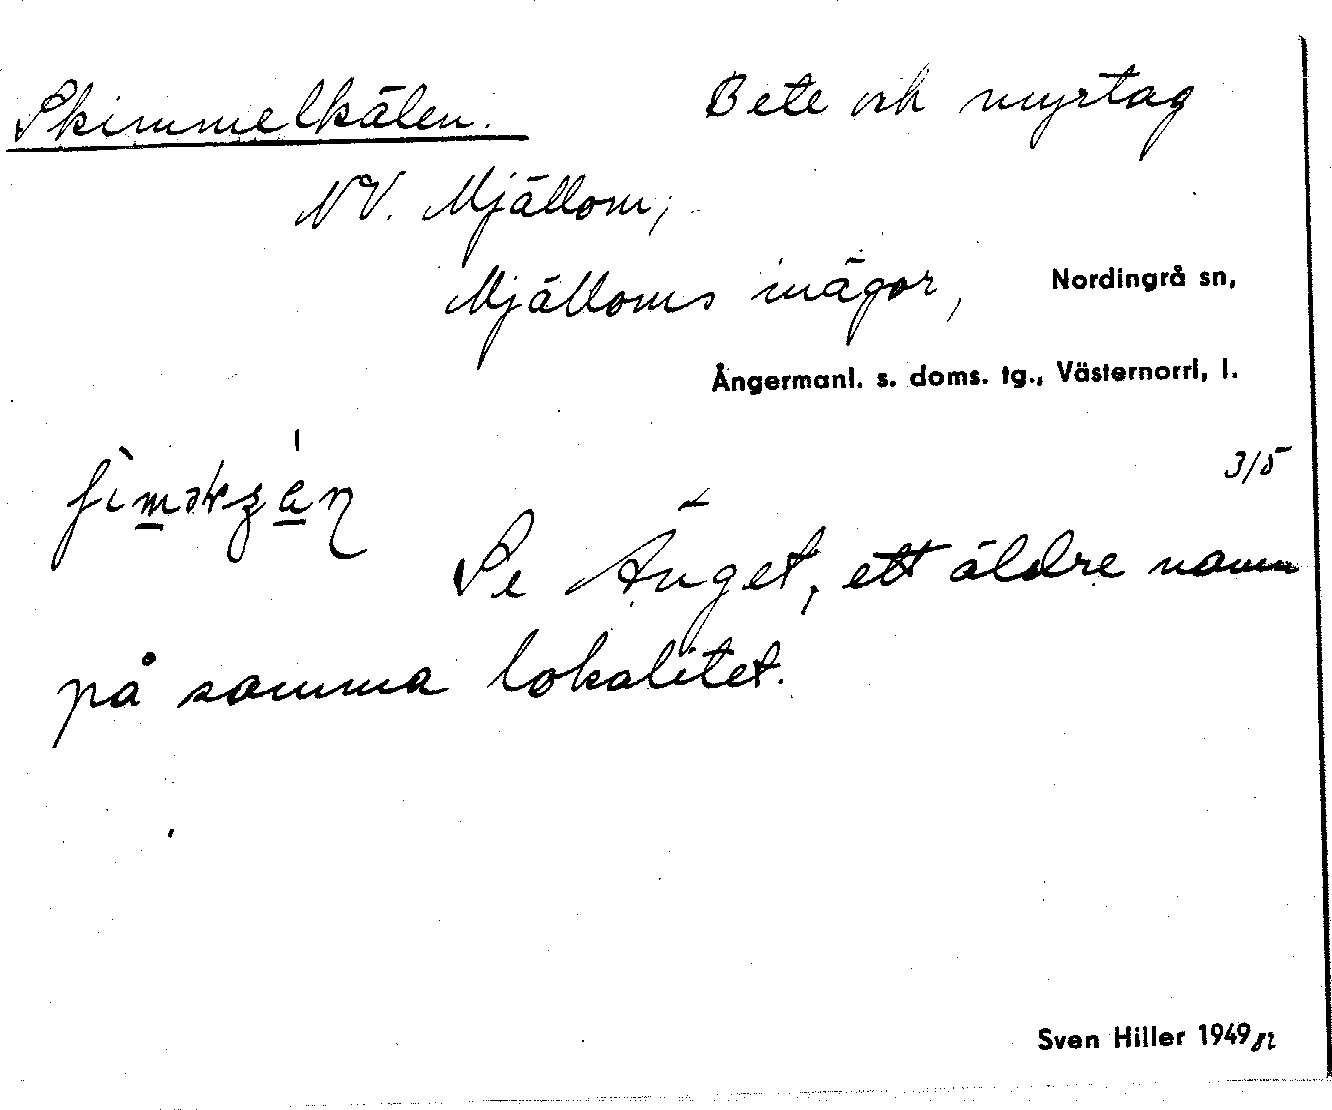 Skimmelkälen. Bete och nyrtag
NV. Mjällom,
Mjälloms inägor, Nordingrå sn,
Ångermanl. s. doms. tg., Västernorrl, l.
3/5
Se Änget, ett äldre namn
på samma lokalitet.
Sven Hiller 1949